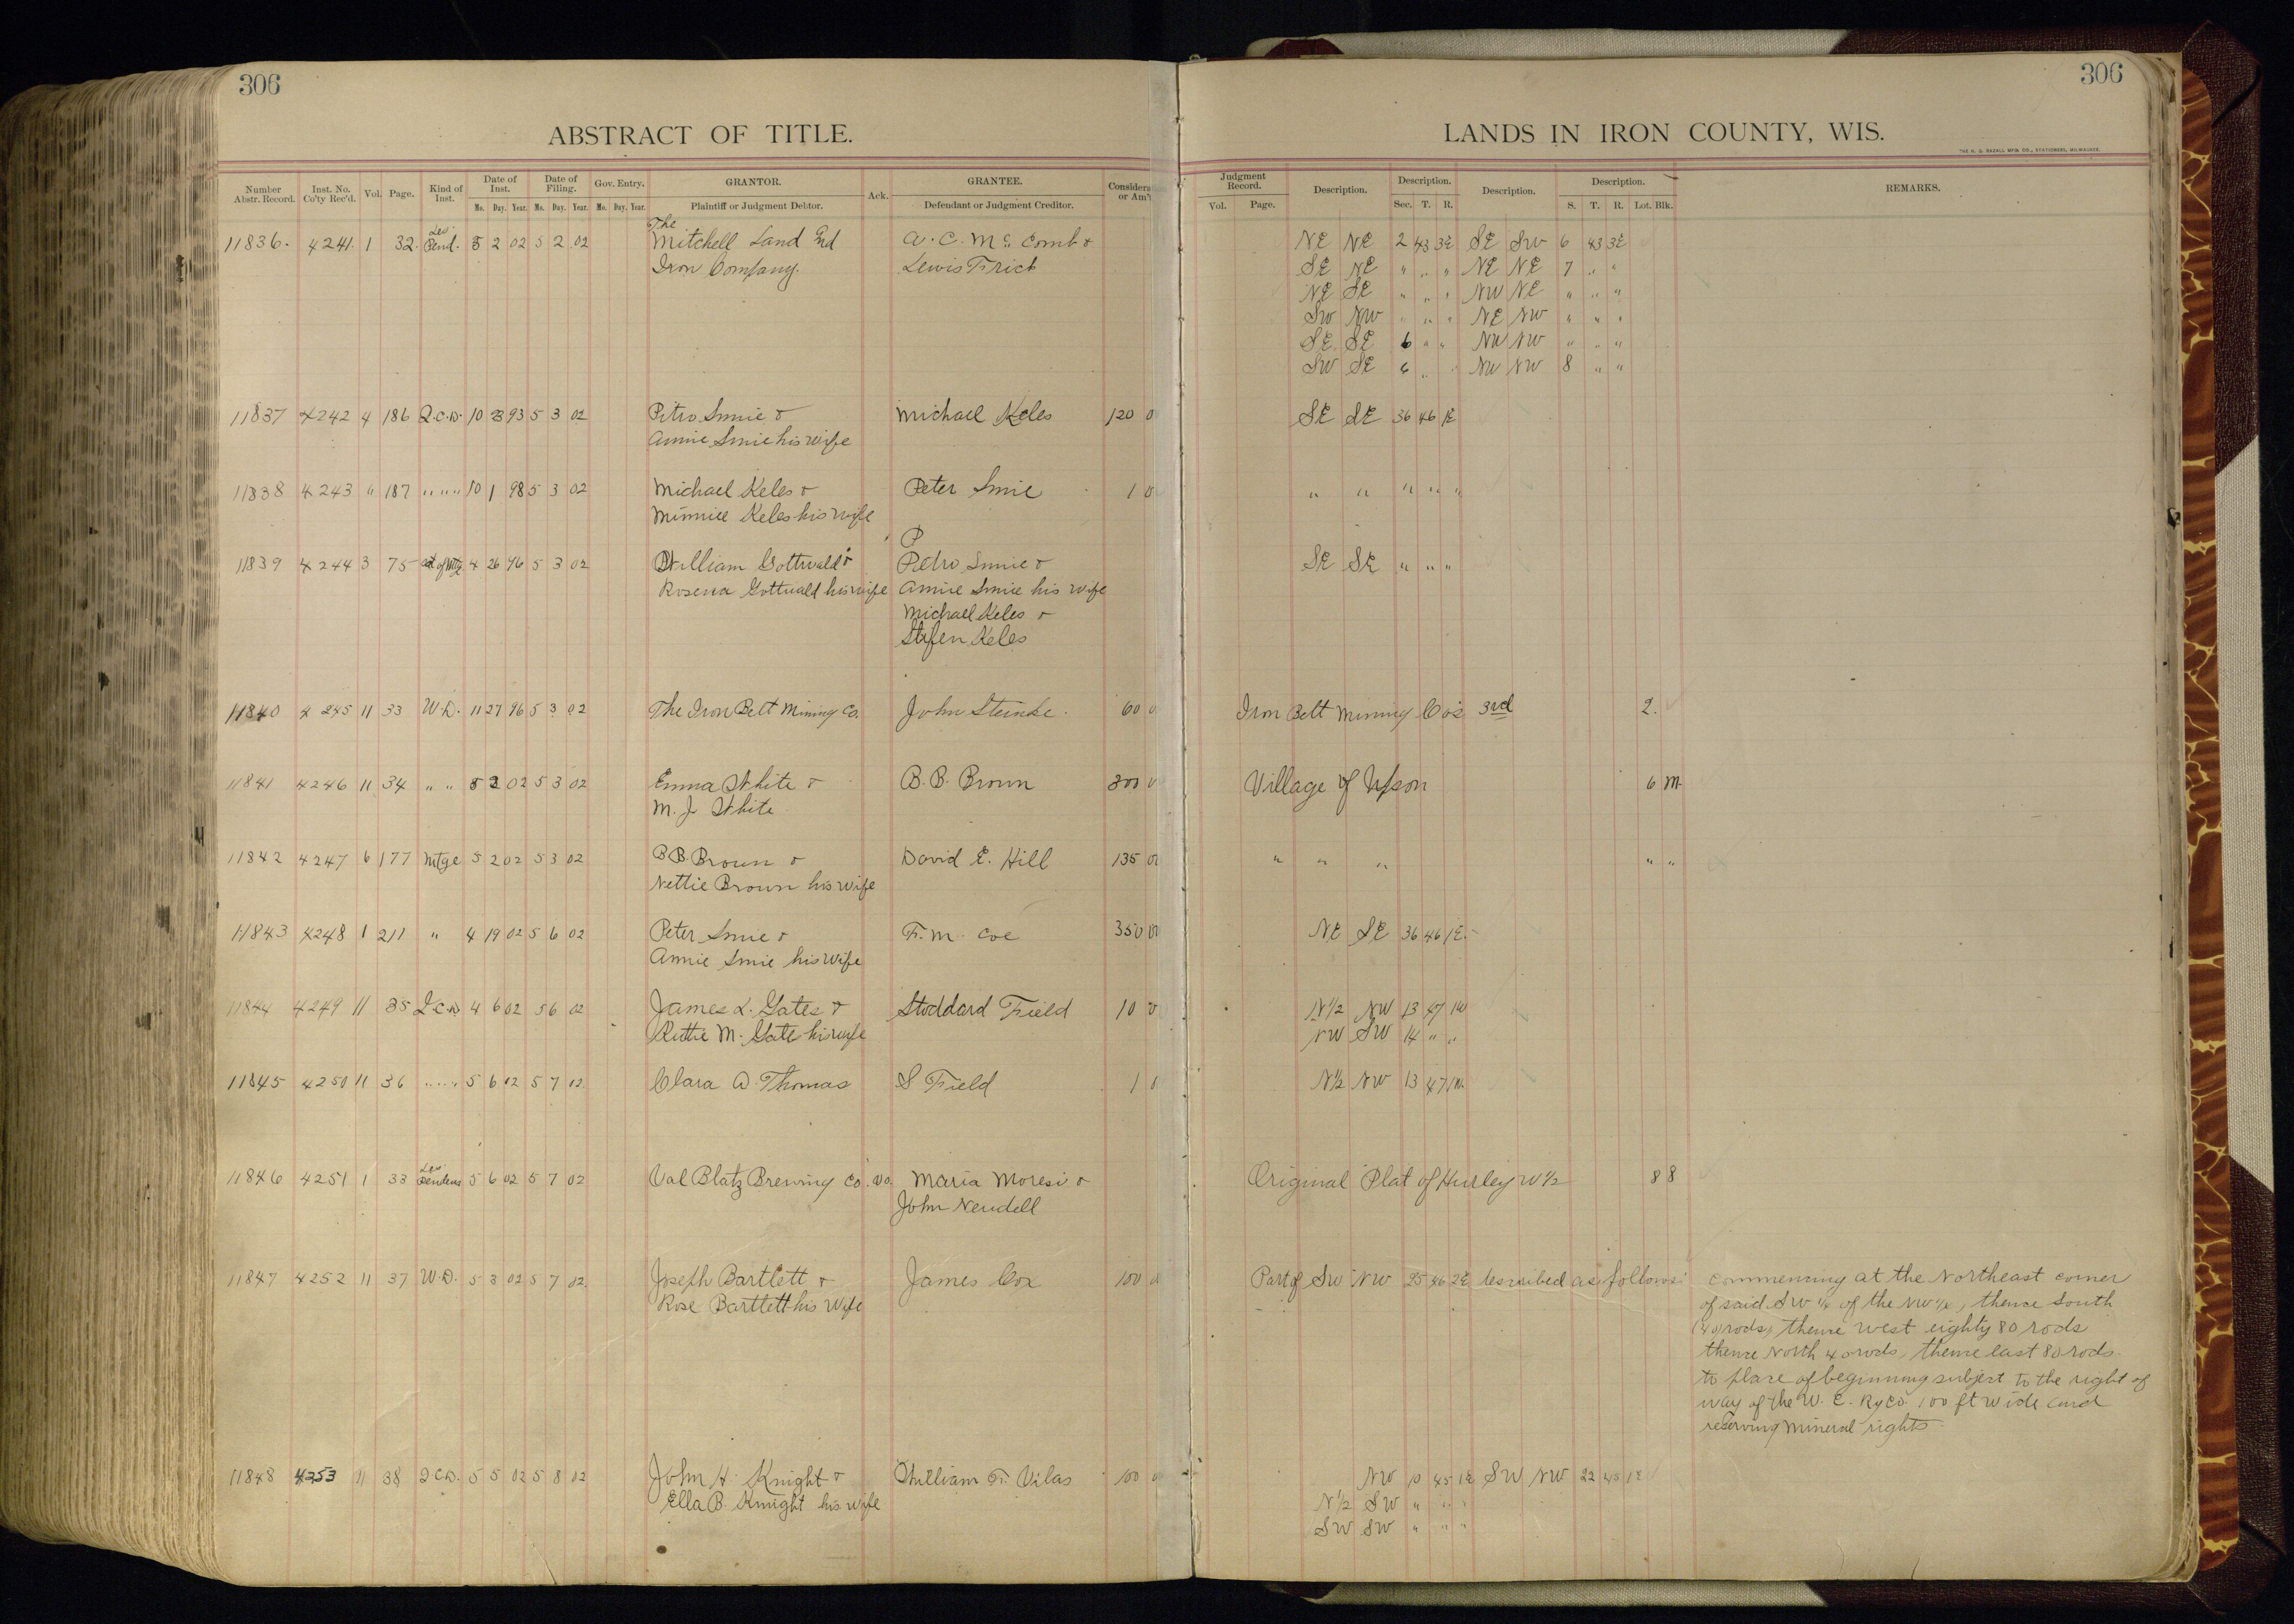 306
306
ABSTRACT OF TITLE.
LANDS IN IRON COUNTY, WIS.
THE H. G. RAZALL MFG. CO., STATIONERS, MILWAUKEE.
Number Abstr. Record. Inst. No. Co'ty Rec'd. Vol. Page. Kind of Inst. Date of Inst. Mo. Day. Year. Date of Filing. Mo. Day. Year. Gov. Entry. Mo. Day. Year. GRANTOR. Plaintiff or Judgment Debtor. Ack. GRANTEE. Defendant or Judgment Creditor. Consideration or Am't
Judgment Record. Vol. Page. Description. Description. Sec. T. R. Description. Description. S. T. R. Lot. Blk. REMARKS.
The
11836. 4241. 1 32. Pend. 5 2 02 5 2 02 Mitchell Land And A. C. McComb & NE NE 2 43 3E SE SW 6 43 3E
Iron Company. Lewis Frick SE NE " " " NE NE 7 " "
NE SE " " " NW NE " " "
SW NW " " " NE NW " " "
SE SE 6 " " NW NW " " "
SW SE 6 " " NW NW 8 " "
11837 4242 4 186 Q.C.D. 10 23 93 5 3 02 Petro Smie & Michael Keles 120 SE SE 36 46 1E
Annie Smie his wife
11838 4243 " 187 " " " 10 1 98 5 3 02 Michael Keles & Peter Smie 1 " " " " "
Minnie Keles his wife
P
11839 4244 3 75 of Mtg 4 26 96 5 3 02 William Gottwald & Pietro Smie & SE SE " " "
Rosena Gottwald his wife Annie Smie his wife
Michael Keles &
Stefen Keles
11840 4245 11 33 W.D. 11 27 96 5 3 02 The Iron Belt Mining Co. John Steinke. 60 Iron Belt Mining Co's 3rd 2.
11841 4246 11 34 " " 5 2 02 5 3 02 Emma White & B. B. Brown 300 Village of Upson 6 M.
M. J. White
11842 4247 6 177 Mtge 5 2 02 5 3 02 B B. Brown & David E. Hill 135 00 " " " " "
Nettie Brown his wife
11843 4248 1 211 " 4 19 02 5 6 02 Peter Smie & F. M. Coe 350 00 NE SE 36 46 1E.
Annie Smie his wife
11844 4249 11 35 Q.C.D 4 6 02 5 6 02 James L. Gates & Stoddard Field 10 N1/2 NW 13 47 1W
M. Gate his wife NW SW 14 " "
11845 4250 11 36 " " " 5 6 02 5 7 02 Clara A. Thomas S Field 1 N1/2 NW 13 47 1W.
11846 4251 1 33 Pendens 5 6 02 5 7 02 Val Blatz Brewing Co. vs. Maria Moresi & Original Plat of Hurley W1/2 8 8
John Nendell
11847 4252 11 37 W.D. 5 3 02 5 7 02. Joseph Bartlett & James Cox 100 Part of SW NW 25 46 2E described as follows: Commencing at the Northeast corner
Rose Bartlett his wife of said SW 1/4 of the NW 1/4, thence South
(40) rods, thence West eighty 80 rods
thence North 40 rods, thence East 80 rods.
to place of beginning subject to the right of
way of the W. C. Ry Co. 100 ft wide and
reserving mineral rights.
11848 4253 11 38 Q.C.D. 5 5 02 5 8 02 John H. Knight & William F. Vilas 100 NW 10 45 1E SW NW 22 45 1E
Ella B. Knight his wife N1/2 SW " " "
SW SW " " "